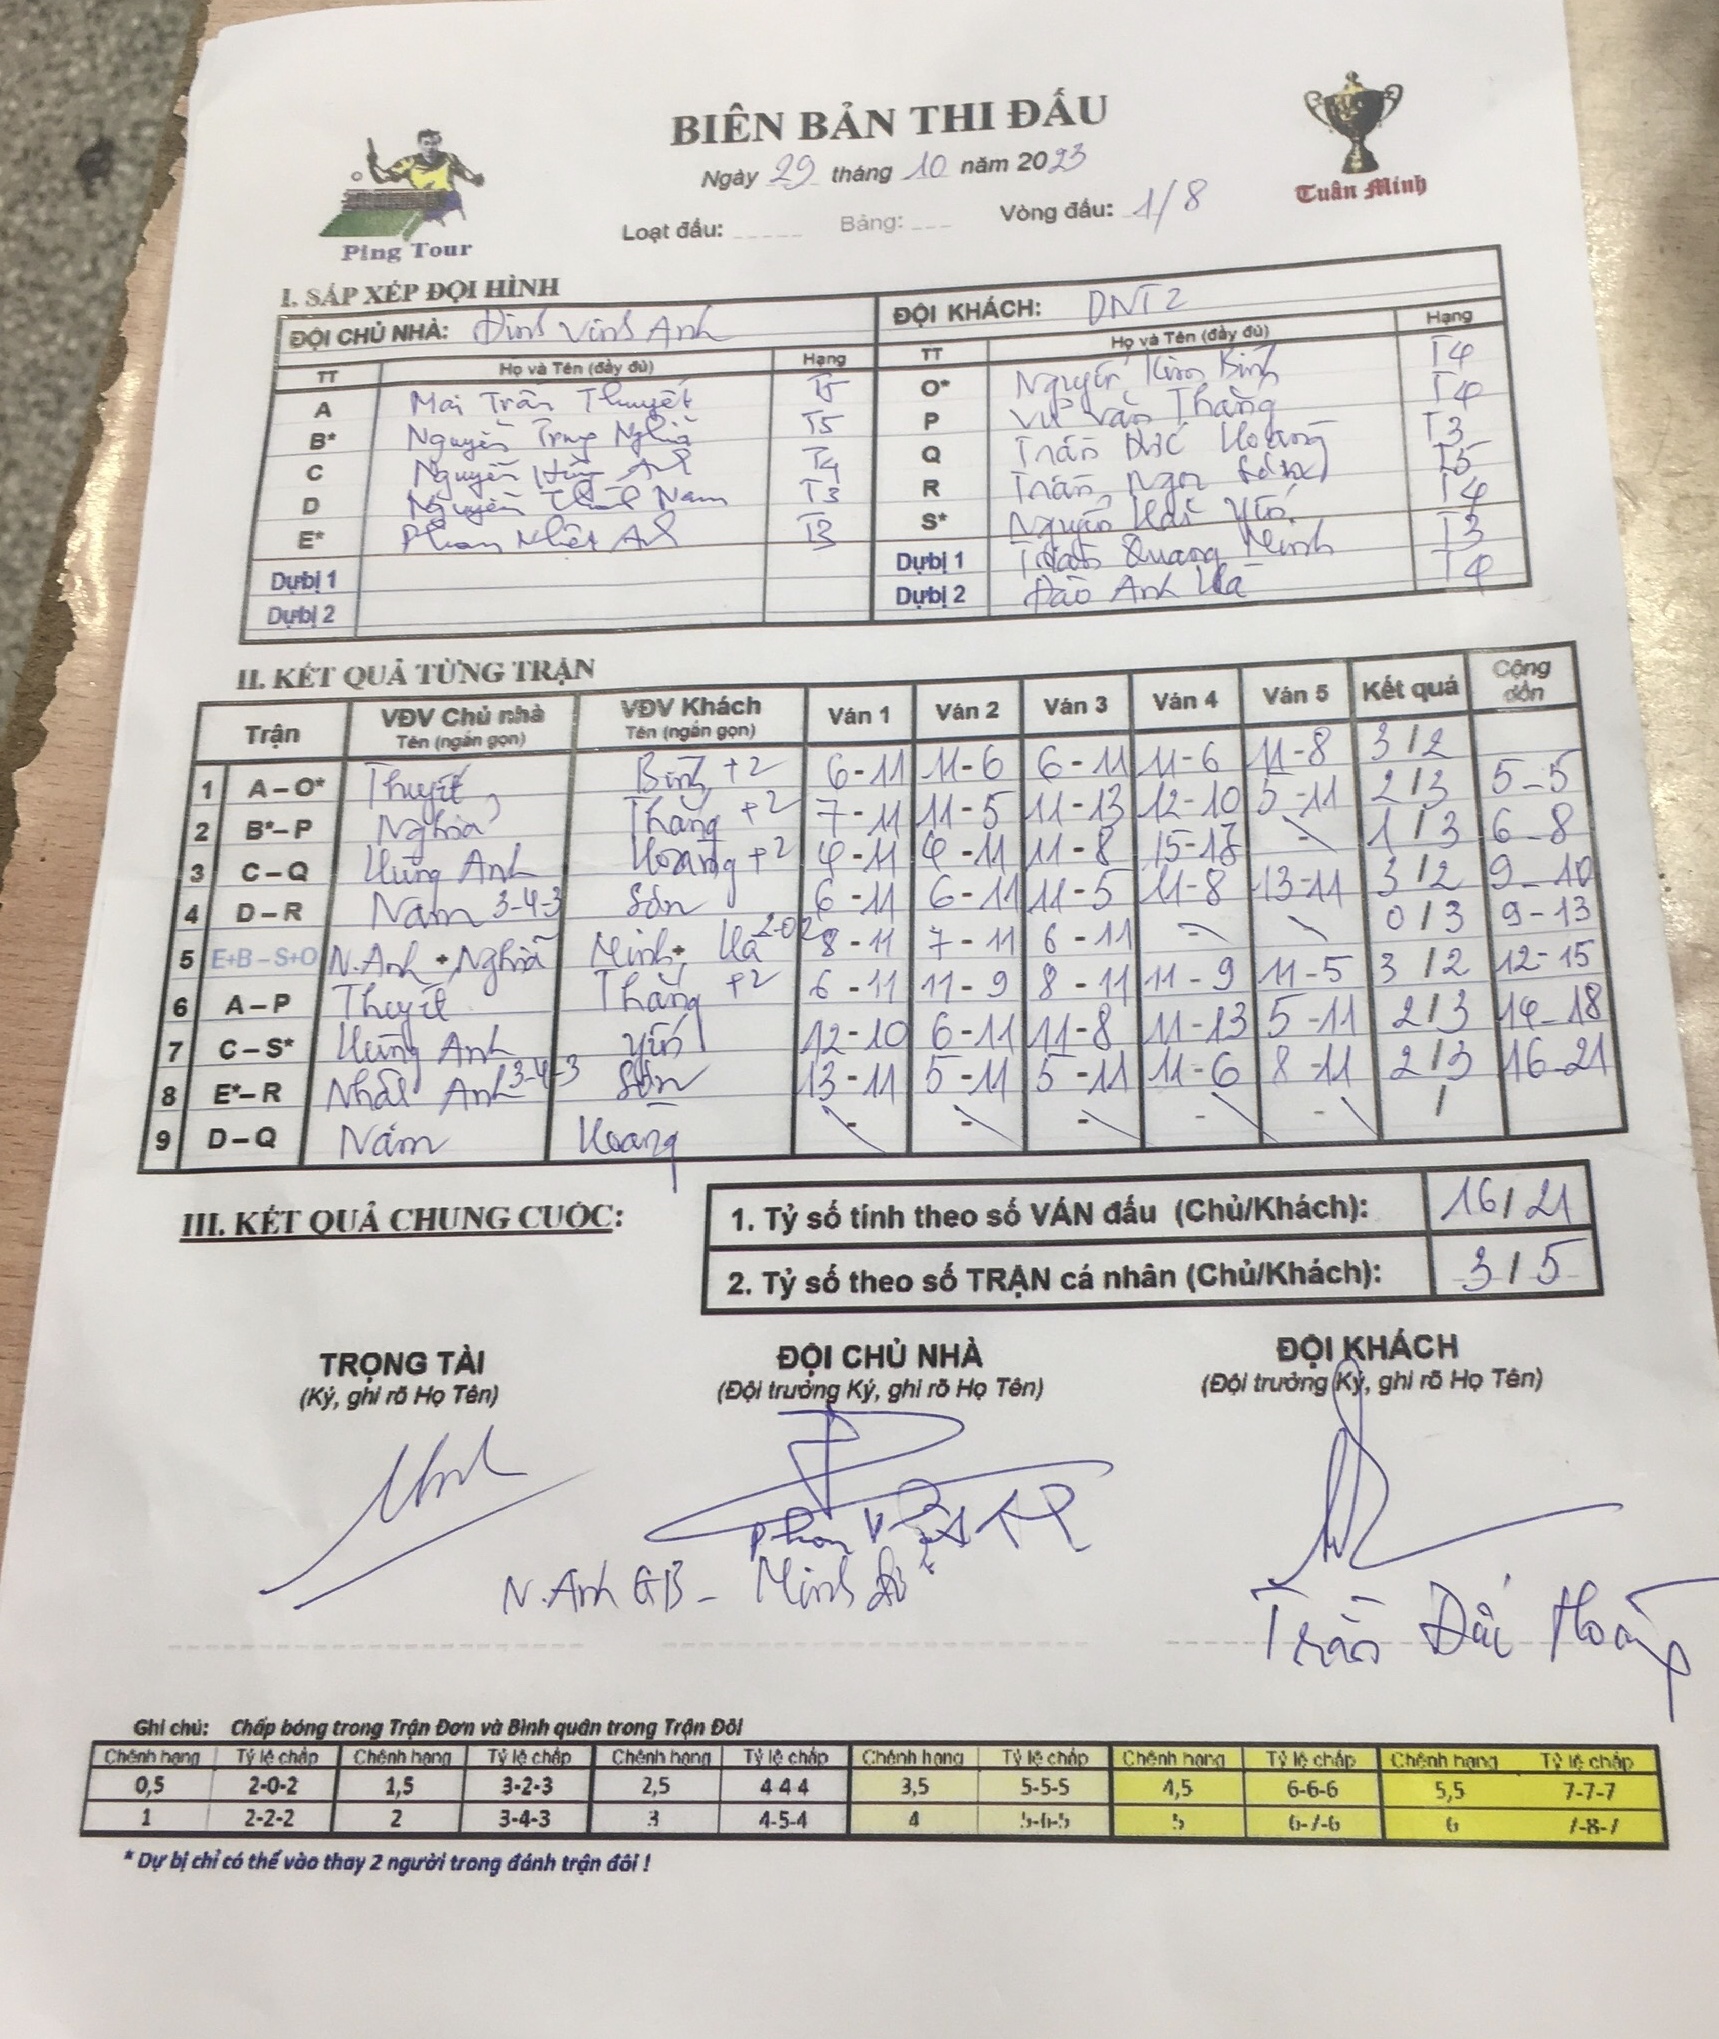 BIÊN BẢN THI ĐẤU
Ngày 29 tháng 10 năm 2023
Loạt đấu: _____ Bảng: ___ Vòng đấu: 1/8
Ping Tour
Tuấn Minh
I. SẮP XẾP ĐỘI HÌNH
ĐỘI CHỦ NHÀ: Đinh Vinh Anh ĐỘI KHÁCH: DNT2
TT Họ và Tên (đầy đủ) Hạng TT Họ và Tên (đầy đủ) Hạng
A Mai Trần Thuyết T5 O* Nguyễn Kim Bình T4
B* Nguyễn Trung Nghĩa T5 P Vũ Văn Thắng T4
C Nguyễn Hùng Anh T4 Q Trần Đức Hoàng T3
D Nguyễn Thành Nam T3 R Trần Ngọc Sơn T5
E* Phan Nhật Anh T3 S* Nguyễn Hải Yến T4
Dự bị 1 Trần Quang Minh T3
Dự bị 2 Dự bị 2 Đào Anh Hà T4
II. KẾT QUẢ TỪNG TRẬN
Trận VĐV Chủ nhà Tên (ngắn gọn) VĐV Khách Tên (ngắn gọn) Ván 1 Ván 2 Ván 3 Ván 4 Ván 5 Kết quả Cộng dồn
1 A – O* Thuyết Bình +2 6-11 11-6 6-11 11-6 11-8 3/2
2 B*– P Nghĩa Thắng +2 7-11 11-5 11-13 12-10 5-11 2/3 5-5
3 C – Q Hùng Anh Hoàng +2 4-11 4-11 11-8 15-17 - 1/3 6-8
4 D – R Nam 3-4-3 Sơn 6-11 6-11 11-5 11-8 13-11 3/2 9-10
5 E+B – S+O N.Anh + Nghĩa Minh + Hà 2-0-2 8-11 7-11 6-11 - - 0/3 9-13
6 A – P Thuyết Thắng +2 6-11 11-9 8-11 11-9 11-5 3/2 12-15
7 C – S* Hùng Anh Yến 12-10 6-11 11-8 11-13 5-11 2/3 14-18
8 E*– R Nhật Anh 3-4-3 Sơn 13-11 5-11 5-11 11-6 8-11 2/3 16-21
9 D – Q Nam Hoàng - - - - - /
III. KẾT QUẢ CHUNG CUỘC:
1. Tỷ số tính theo số VÁN đấu (Chủ/Khách): 16/21
2. Tỷ số theo số TRẬN cá nhân (Chủ/Khách): 3/5
TRỌNG TÀI ĐỘI CHỦ NHÀ ĐỘI KHÁCH
(Ký, ghi rõ Họ Tên) (Đội trưởng Ký, ghi rõ Họ Tên) (Đội trưởng Ký, ghi rõ Họ Tên)
N.Anh GB - Minh
Trần Đức Hoàng
Ghi chú: Chấp bóng trong Trận Đơn và Bình quân trong Trận Đôi
Chênh hạng Tỷ lệ chấp Chênh hạng Tỷ lệ chấp Chênh hạng Tỷ lệ chấp Chênh hạng Tỷ lệ chấp Chênh hạng Tỷ lệ chấp Chênh hạng Tỷ lệ chấp
0,5 2-0-2 1,5 3-2-3 2,5 4 4 4 3,5 5-5-5 4,5 6-6-6 5,5 7-7-7
1 2-2-2 2 3-4-3 3 4-5-4 4 5-6-5 5 6-7-6 6 7-8-7
* Dự bị chỉ có thể vào thay 2 người trong đánh trận đôi !